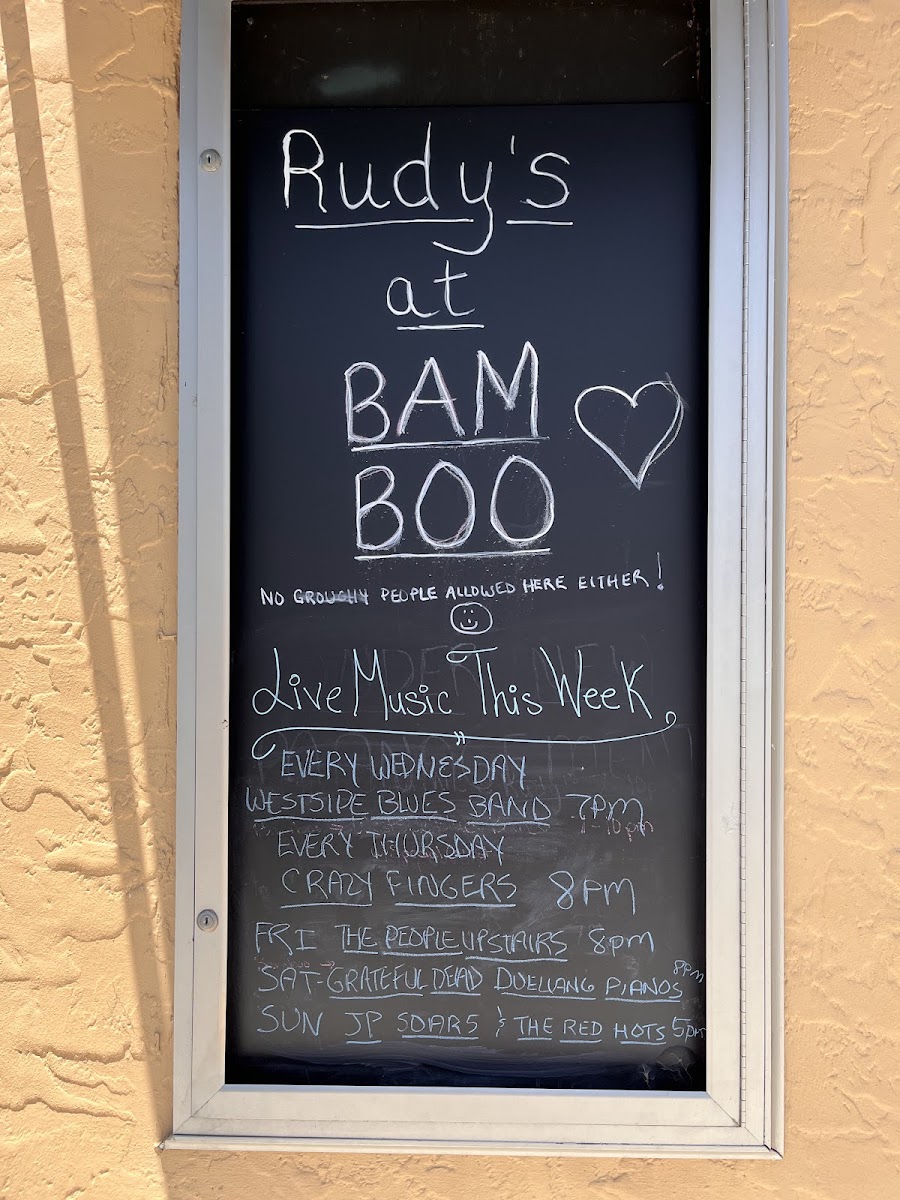 Rudy's
at
BAM
BOO
NO GROUCHY PEOPLE ALLOWED HERE EITHER!
Live Music This Week
EVERY WEDNESDAY
WESTSIDE BLUES BAND 7PM
EVERY THURSDAY
CRAZY FINGERS 8PM
FRI THE PEOPLE UPSTAIRS 8pm
SAT-GRATEFUL DEAD DUELLANG PIANOS 8PM
SUN JP SOARS & THE RED HOTS 5pm